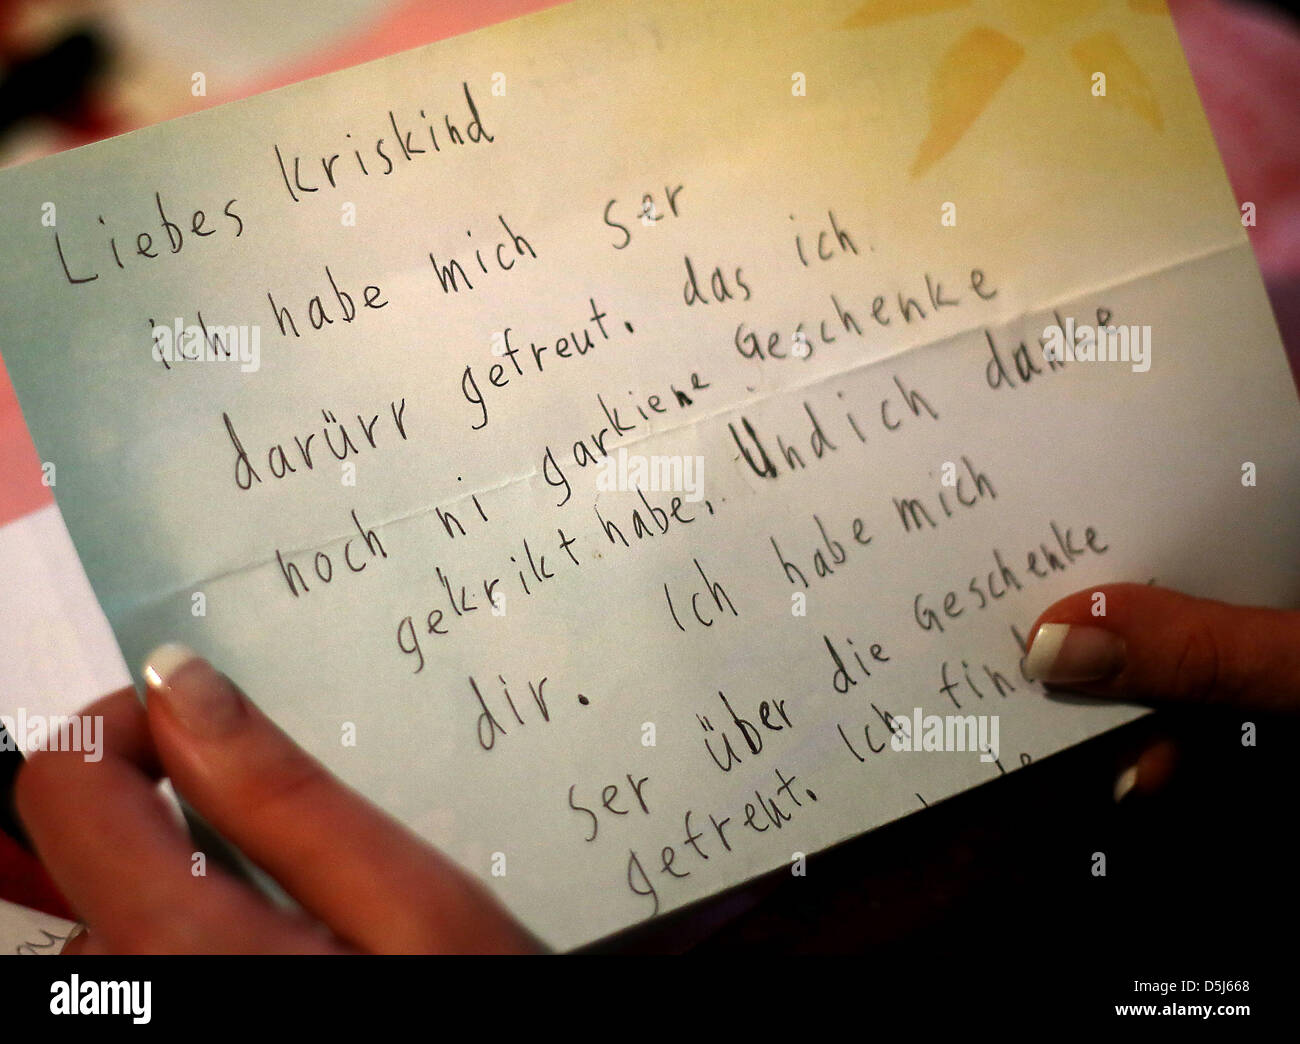 Liebes Kriskind
ich habe mich ser
darürr gefreut. das ich.
noch ni garkiene Geschenke
gekrikt habe. Und ich danke
dir. Ich habe mich
ser über die Geschenke
gefreut. Ich find
alamy
Image ID: D5J668
www.alamy.com